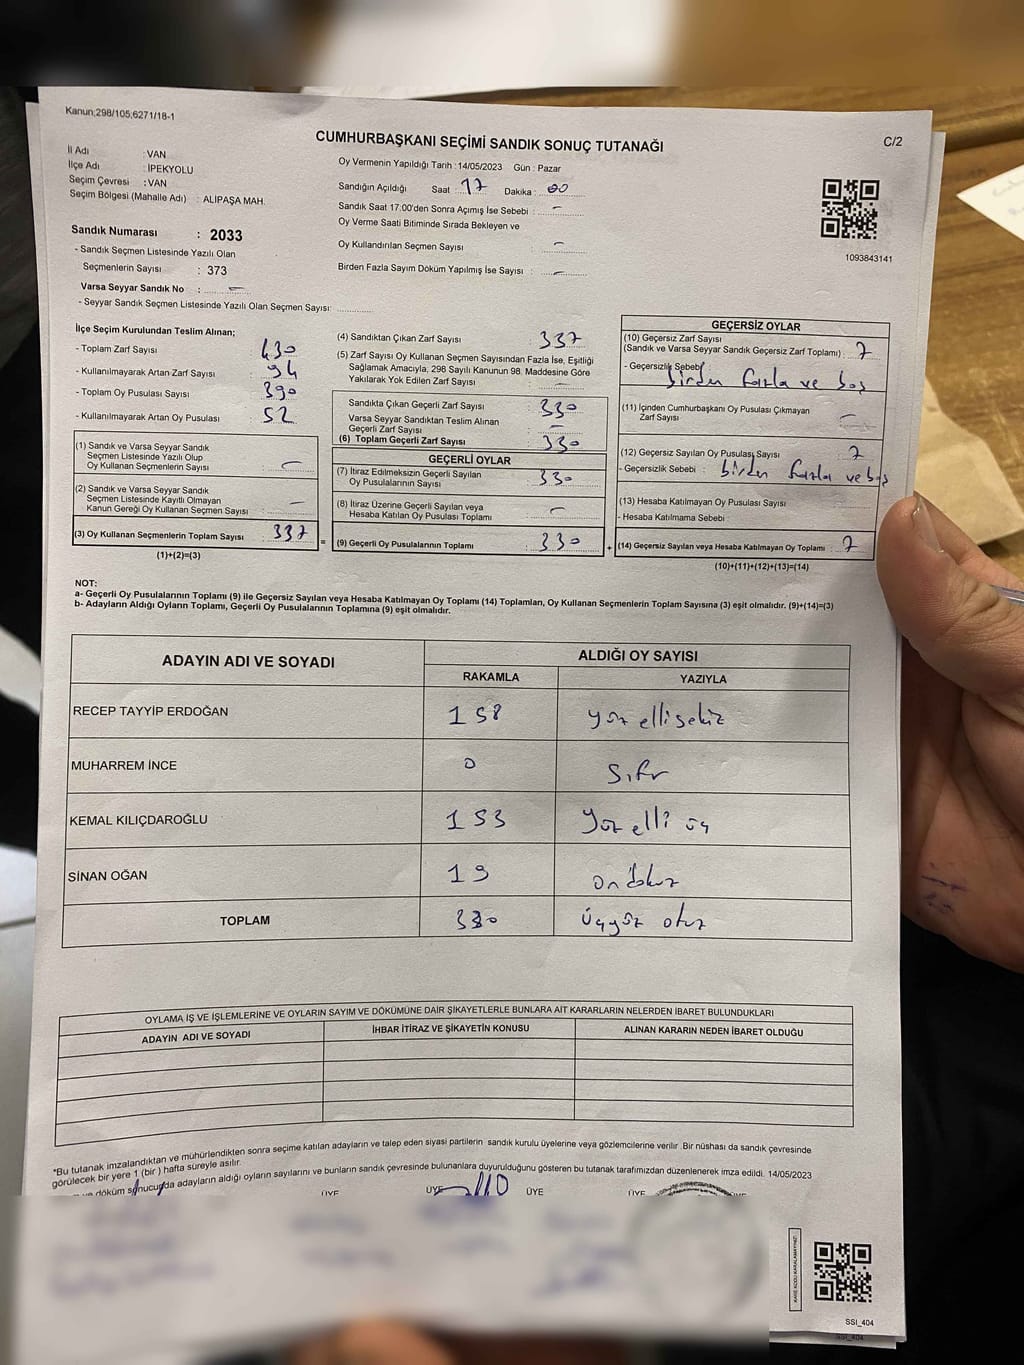 Kanun;298/105,6271/18-1
CUMHURBAŞKANI SEÇİMİ SANDIK SONUÇ TUTANAĞI
C/2
İl Adı : VAN
İlçe Adı : İPEKYOLU
Seçim Çevresi : VAN
Seçim Bölgesi (Mahalle Adı) : ALİPAŞA MAH.
Sandık Numarası : 2033
- Sandık Seçmen Listesinde Yazılı Olan
Seçmenlerin Sayısı : 373
Varsa Seyyar Sandık No : –
- Seyyar Sandık Seçmen Listesinde Yazılı Olan Seçmen Sayısı:
Oy Vermenin Yapıldığı Tarih : 14/05/2023 Gün : Pazar
Sandığın Açıldığı Saat : 17 Dakika : 00
Sandık Saat 17:00'den Sonra Açımış İse Sebebi : –
Oy Verme Saati Bitiminde Sırada Bekleyen ve
Oy Kullandırılan Seçmen Sayısı : –
Birden Fazla Sayım Döküm Yapılmış İse Sayısı : –
1093843141
İlçe Seçim Kurulundan Teslim Alınan;
- Toplam Zarf Sayısı : 430
- Kullanılmayarak Artan Zarf Sayısı : 94
- Toplam Oy Pusulası Sayısı : 390
- Kullanılmayarak Artan Oy Pusulası : 52
(1) Sandık ve Varsa Seyyar Sandık
Seçmen Listesinde Yazılı Olup
Oy Kullanan Seçmenlerin Sayısı : –
(2) Sandık ve Varsa Seyyar Sandık
Seçmen Listesinde Kayıtlı Olmayan
Kanun Gereği Oy Kullanan Seçmen Sayısı : –
(3) Oy Kullanan Seçmenlerin Toplam Sayısı : 337
(1)+(2)=(3)
=
(4) Sandıktan Çıkan Zarf Sayısı : 337
(5) Zarf Sayısı Oy Kullanan Seçmen Sayısından Fazla İse, Eşitliği
Sağlamak Amacıyla, 298 Sayılı Kanunun 98. Maddesine Göre
Yakılarak Yok Edilen Zarf Sayısı : –
Sandıkta Çıkan Geçerli Zarf Sayısı : 330
Varsa Seyyar Sandıktan Teslim Alınan
Geçerli Zarf Sayısı : –
(6) Toplam Geçerli Zarf Sayısı : 330
GEÇERLİ OYLAR
(7) İtiraz Edilmeksizin Geçerli Sayılan
Oy Pusulalarının Sayısı : 330
(8) İtiraz Üzerine Geçerli Sayılan veya
Hesaba Katılan Oy Pusulası Toplamı : –
(9) Geçerli Oy Pusulalarının Toplamı : 330
+
GEÇERSİZ OYLAR
(10) Geçersiz Zarf Sayısı
(Sandık ve Varsa Seyyar Sandık Geçersiz Zarf Toplamı) : 7
- Geçersizlik Sebebi : birden fazla ve boş
(11) İçinden Cumhurbaşkanı Oy Pusulası Çıkmayan
Zarf Sayısı : –
(12) Geçersiz Sayılan Oy Pusulası Sayısı : 7
- Geçersizlik Sebebi : birden fazla ve boş
(13) Hesaba Katılmayan Oy Pusulası Sayısı
- Hesaba Katılmama Sebebi
(14) Geçersiz Sayılan veya Hesaba Katılmayan Oy Toplamı : 7
(10)+(11)+(12)+(13)=(14)
NOT:
a- Geçerli Oy Pusulalarının Toplamı (9) ile Geçersiz Sayılan veya Hesaba Katılmayan Oy Toplamı (14) Toplamları, Oy Kullanan Seçmenlerin Toplam Sayısına (3) eşit olmalıdır. (9)+(14)=(3)
b- Adayların Aldığı Oyların Toplamı, Geçerli Oy Pusulalarının Toplamına (9) eşit olmalıdır.
ADAYIN ADI VE SOYADI ALDIĞI OY SAYISI
RAKAMLA YAZIYLA
RECEP TAYYİP ERDOĞAN 158 yüz ellisekiz
MUHARREM İNCE 0 Sıfır
KEMAL KILIÇDAROĞLU 153 Yüz elli üç
SİNAN OĞAN 19 On dokuz
TOPLAM 330 üçyüz otuz
OYLAMA İŞ VE İŞLEMLERİNE VE OYLARIN SAYIM VE DÖKÜMÜNE DAİR ŞİKAYETLERLE BUNLARA AİT KARARLARIN NELERDEN İBARET BULUNDUKLARI
ADAYIN ADI VE SOYADI İHBAR İTİRAZ VE ŞİKAYETİN KONUSU ALINAN KARARIN NEDEN İBARET OLDUĞU
*Bu tutanak imzalandıktan ve mühürlendikten sonra seçime katılan adayların ve talep eden siyasi partilerin sandık kurulu üyelerine veya gözlemcilerine verilir. Bir nüshası da sandık çevresinde
görülecek bir yere 1 (bir) hafta süreyle asılır.
ve döküm sonucunda adayların aldığı oyların sayılarını ve bunların sandık çevresinde bulunanlara duyurulduğunu gösteren bu tutanak tarafımızdan düzenlenerek imza edildi. 14/05/2023
ÜYE ÜYE ÜYE ÜYE
KARE KODU KARALAMAYINIZ!
SSI_404
SSI_404